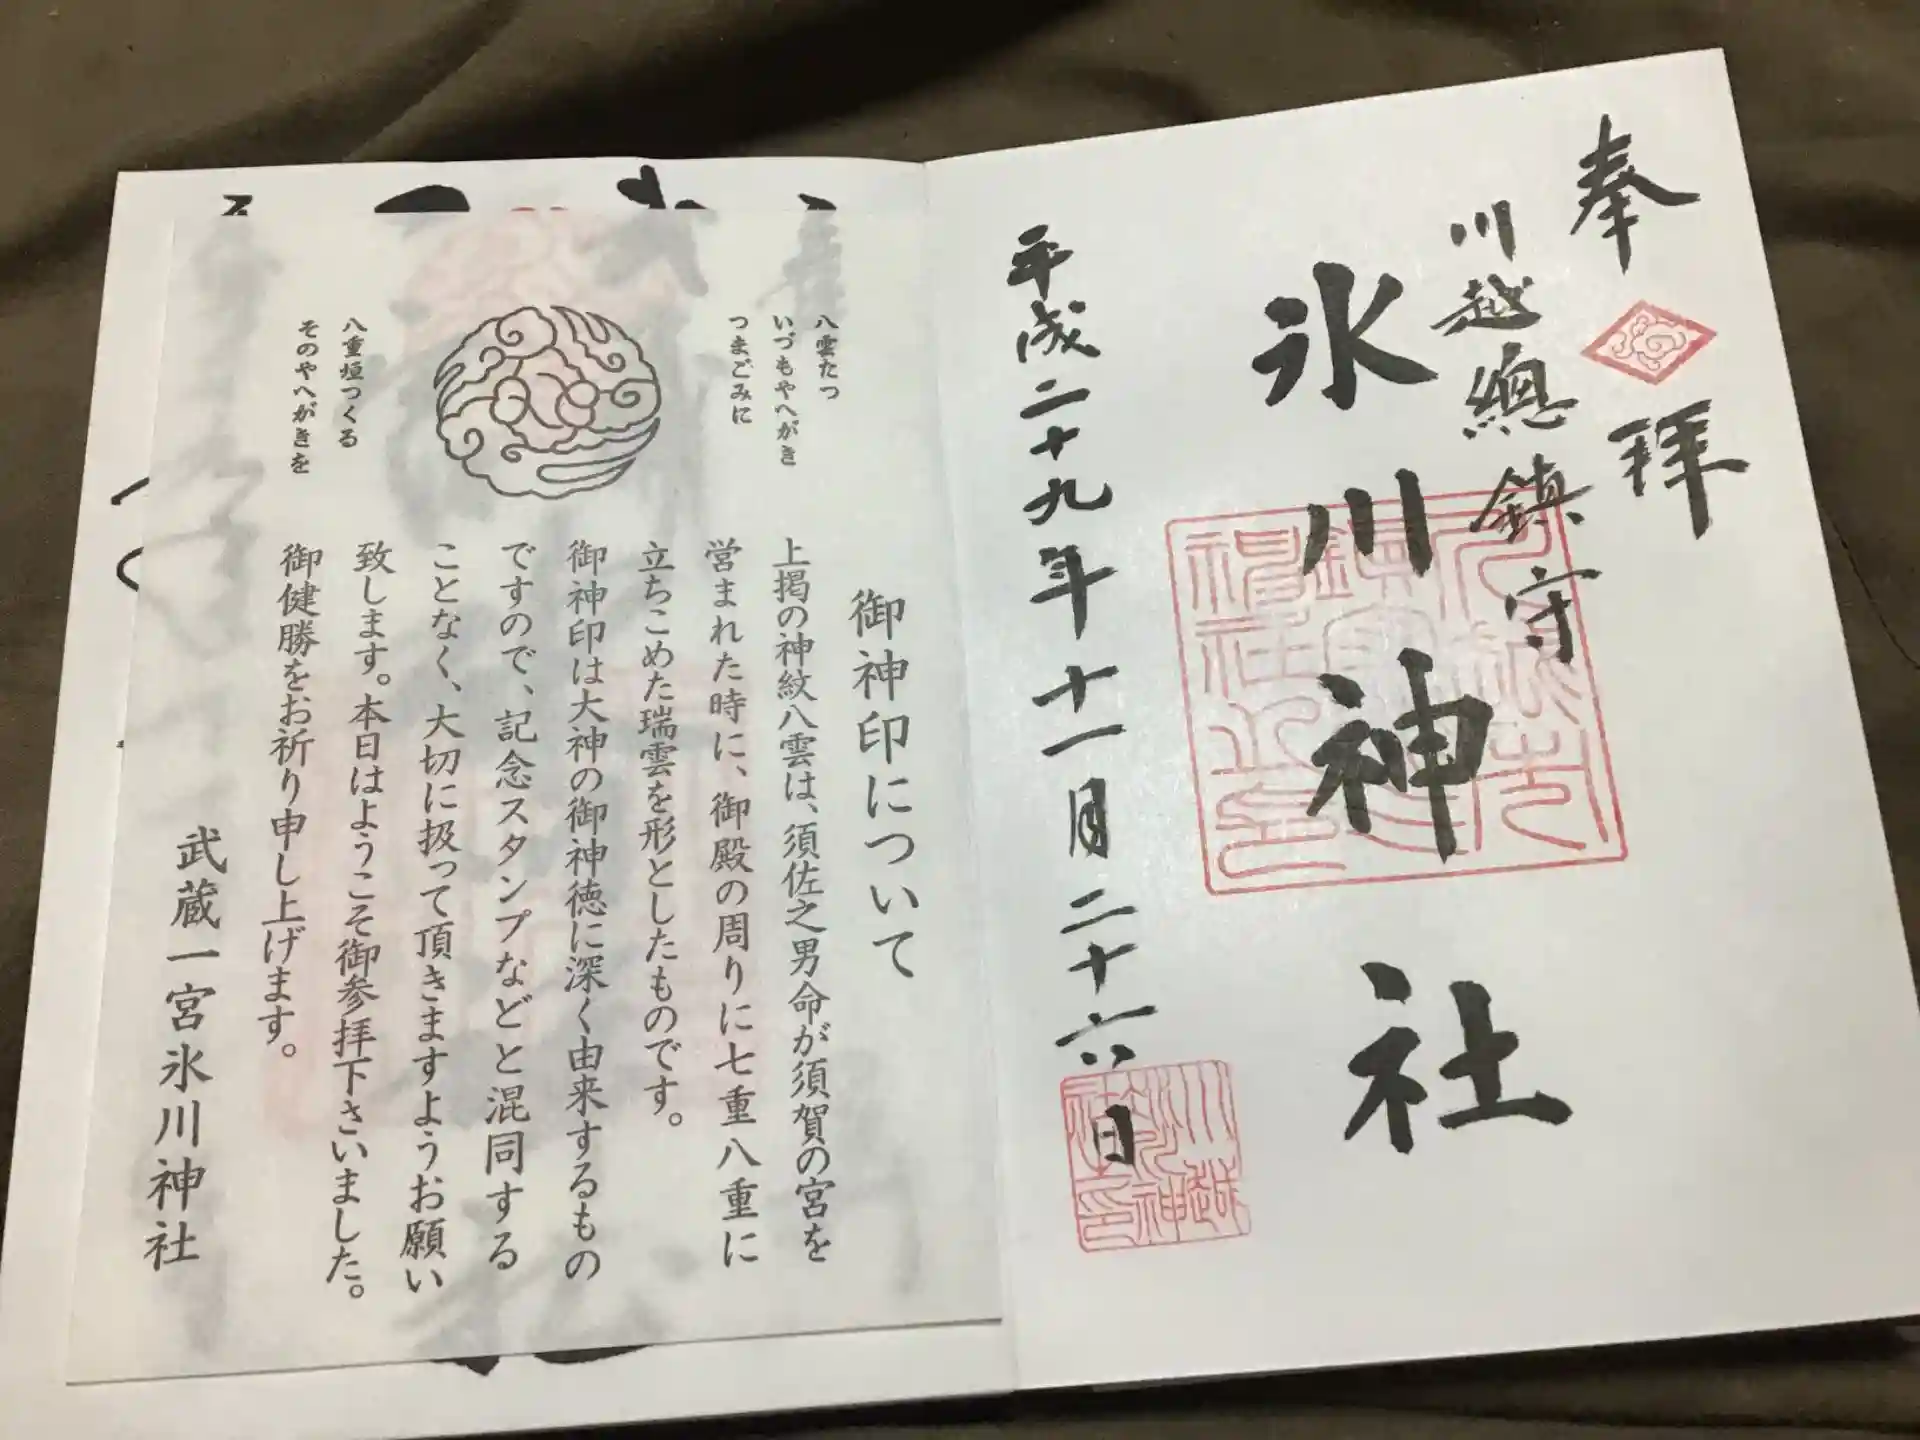 奉拝
川越總鎮守
氷川神社
平成二十九年十一月二十六日
川越
氷川神
社之印
八雲たつ
いづもやへがき
つまごみに
八重垣つくる
そのやへがきを
御神印について
上掲の神紋八雲は、須佐之男命が須賀の宮を
営まれた時に、御殿の周りに七重八重に
立ちこめた瑞雲を形としたものです。
御神印は大神の御神徳に深く由来するもの
ですので、記念スタンプなどと混同する
ことなく、大切に扱って頂きますようお願い
致します。本日はようこそ御参拝下さいました。
御健勝をお祈り申し上げます。
武蔵一宮氷川神社